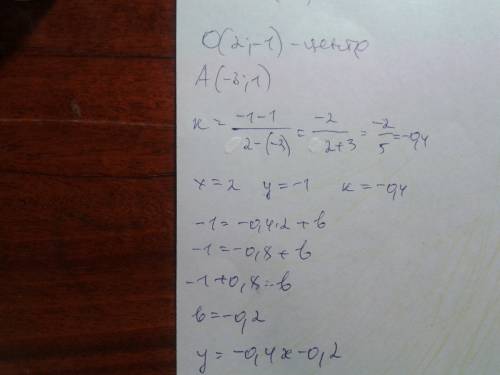 O(2;-1) - центр
A(-3;1)
к = -1-1/2-(-3) = -2/2+3 = -2/5 = -0,4
x=2 y=-1 к=-0,4
-1=-0,4·2+b
-1=-0,8+b
-1+0,8=b
b=-0,2
y=-0,4x-0,2